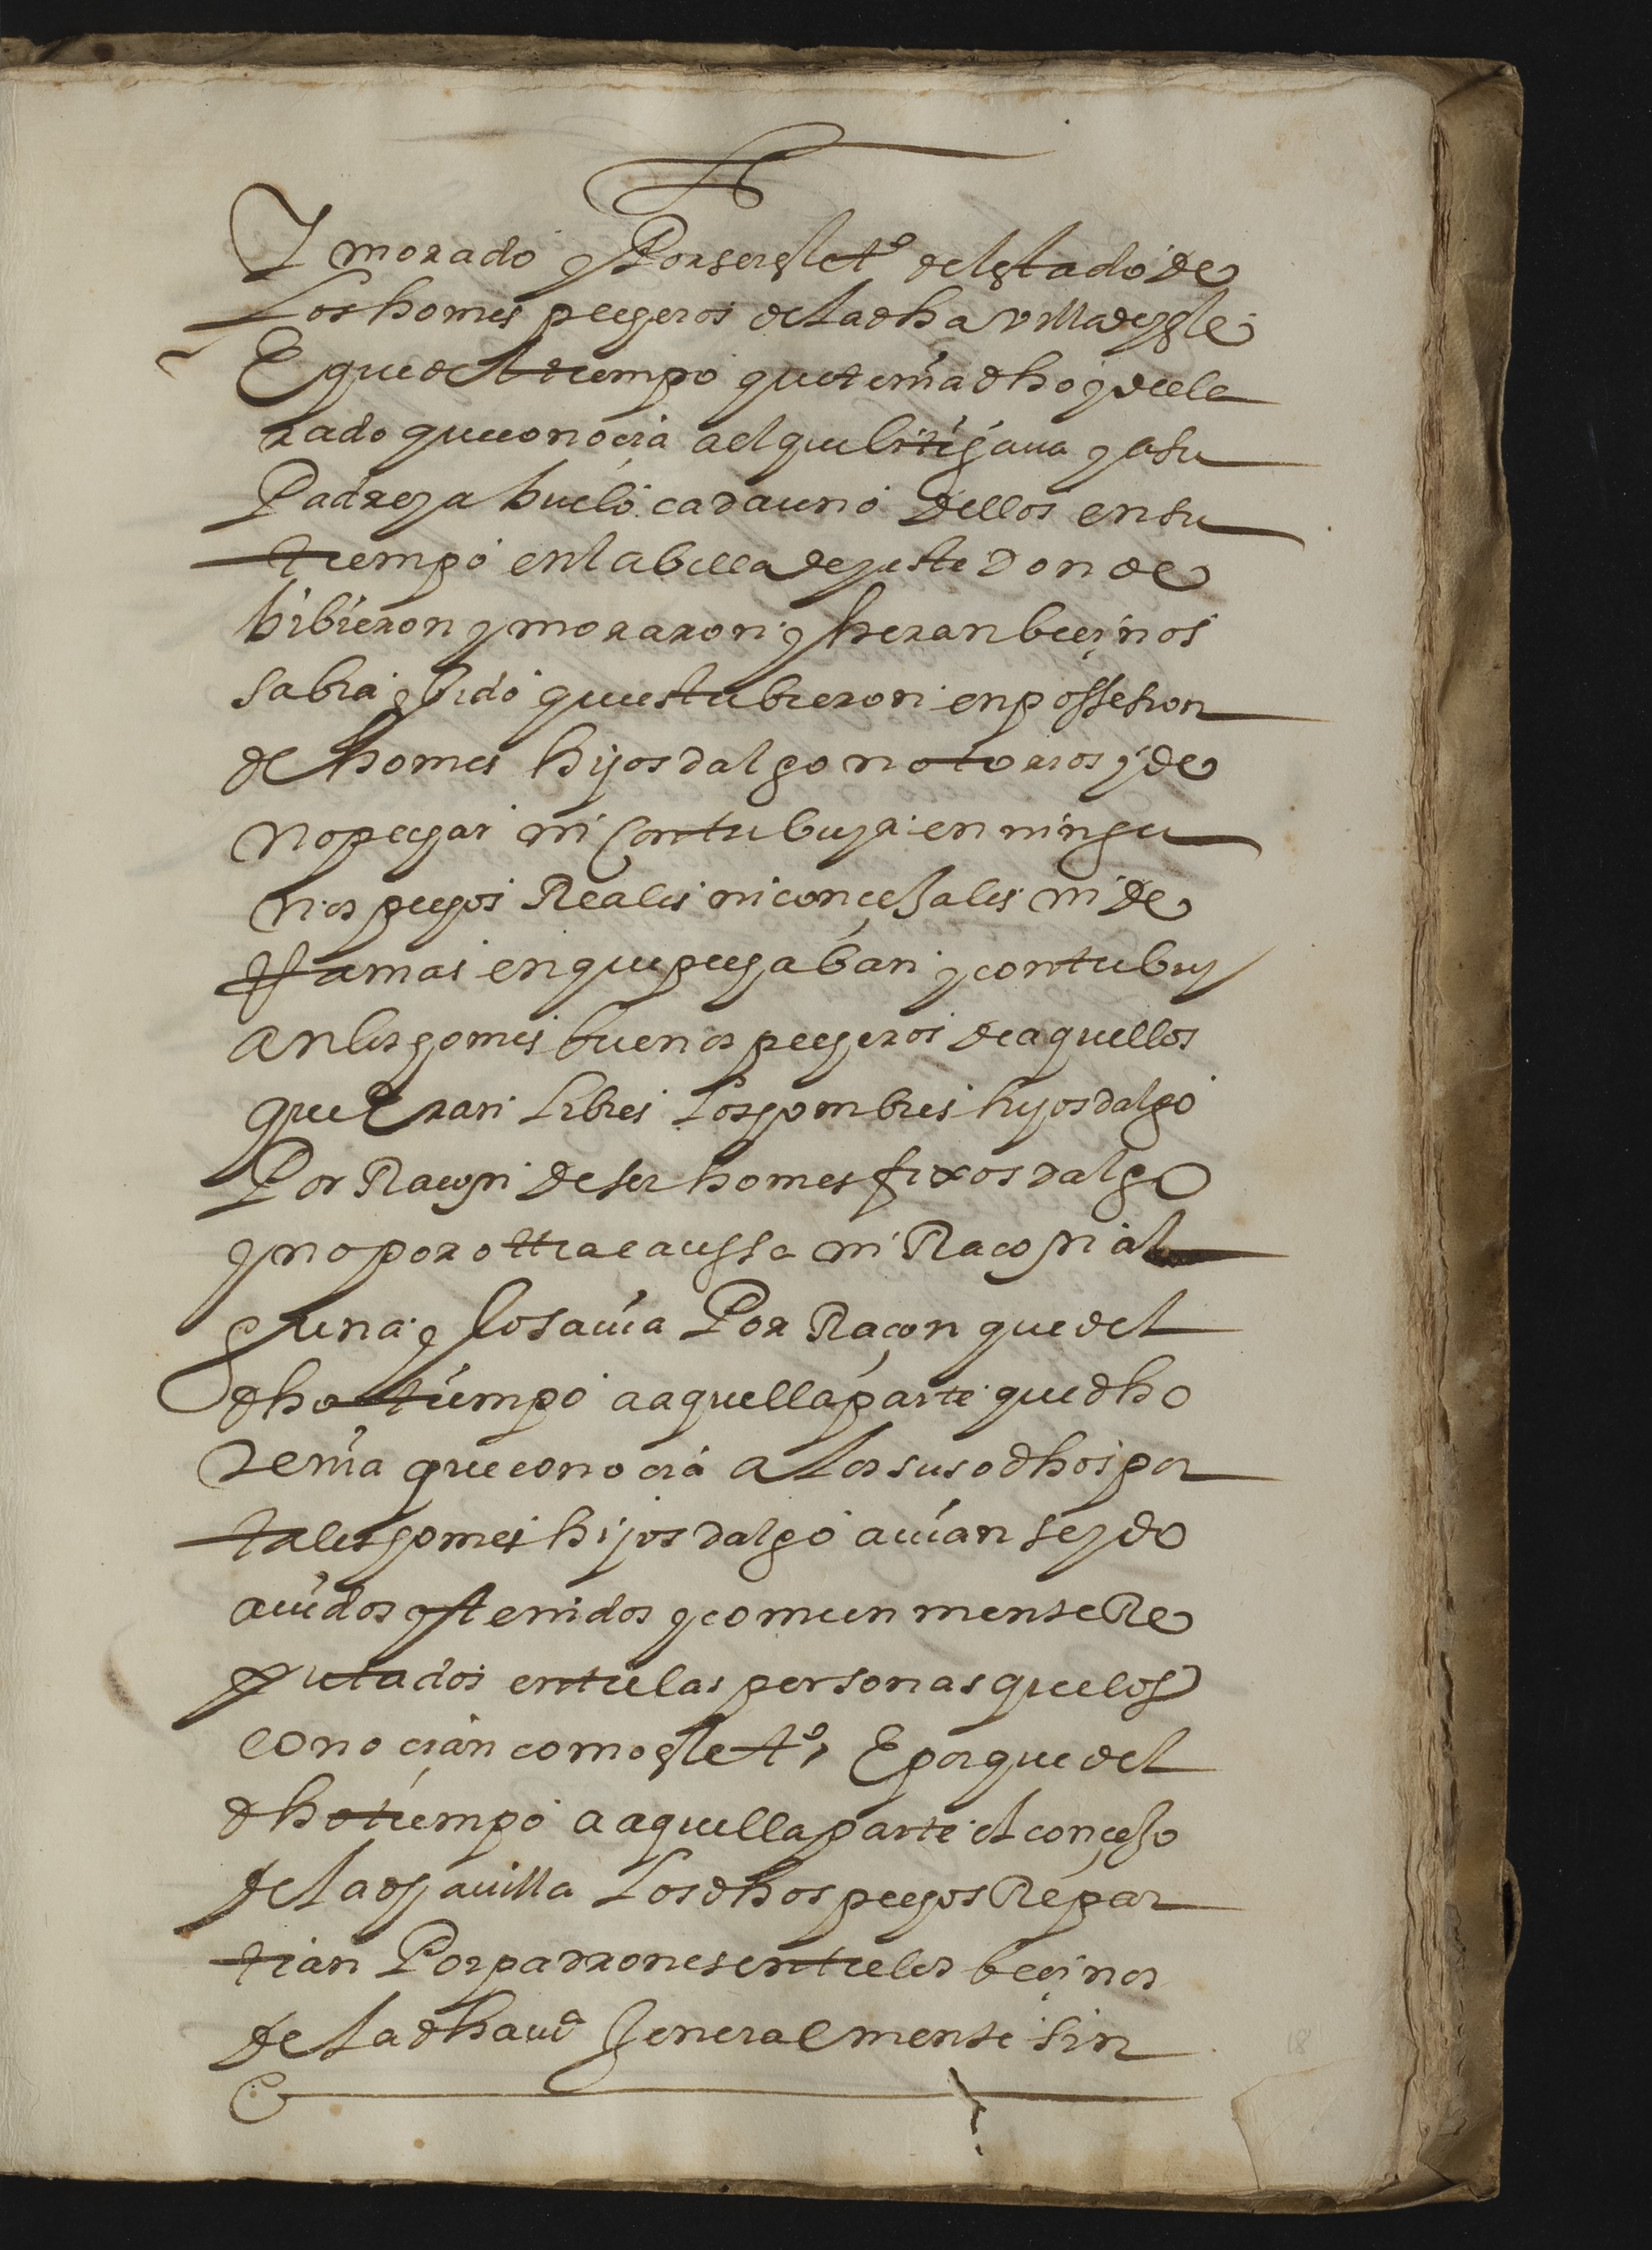 Y morado y Por ser este tº del estado de
Los homes pecheros de la dha villa de yste
E que del tiempo que tenia dho y decla
rado que conocia a el que litigaua y a su
Padre y abuelo cada uno dellos en su
tiempo en la billa de yuste Donde
bibieron y moraron y heran becinos
sabia y bido que estubieron en possesion
de homes hijos dalgo notorios y de
no pechar ni Contribuyr en ningu
nos pechos Reales ni conçejales ni de
Ramas en que pechaban y contribuy
an los homes buenos pecheros de aquellos
que Eran Libres Los hombres hijos dalgo
Por Raçon de ser homes fixos dalgo
y no por ottra caussa ni Raçon al
guna y lo sauia Por Raçon que del
dho tiempo a aquella parte que dho
Tenia que conocia a los susodhos por
tales homes hijos dalgo auian seydo
auidos y tenidos y comunmente Re
putados entre las personas que los
conocian como este tº, E porque del
dho tiempo a aquella parte el conçejo
de la dha uilla Los dhos pechos Repar
tian Por padrones entre los becinos
de la dha uª Jeneralmente sin
18